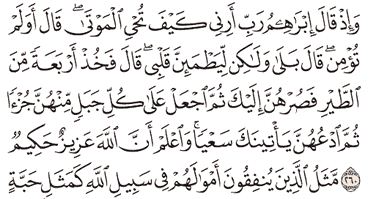 وَإِذْ قَالَ إِبْرَٰهِـۧمُ رَبِّ أَرِنِى كَيْفَ تُحْىِ ٱلْمَوْتَىٰ ۖ قَالَ أَوَلَمْ
تُؤْمِن ۖ قَالَ بَلَىٰ وَلَـٰكِن لِّيَطْمَئِنَّ قَلْبِى ۖ قَالَ فَخُذْ أَرْبَعَةً مِّنَ
ٱلطَّيْرِ فَصُرْهُنَّ إِلَيْكَ ثُمَّ ٱجْعَلْ عَلَىٰ كُلِّ جَبَلٍ مِّنْهُنَّ جُزْءًا
ثُمَّ ٱدْعُهُنَّ يَأْتِينَكَ سَعْيًا ۚ وَٱعْلَمْ أَنَّ ٱللَّهَ عَزِيزٌ حَكِيمٌ
٢٦٠ مَّثَلُ ٱلَّذِينَ يُنفِقُونَ أَمْوَٰلَهُمْ فِى سَبِيلِ ٱللَّهِ كَمَثَلِ حَبَّةٍ